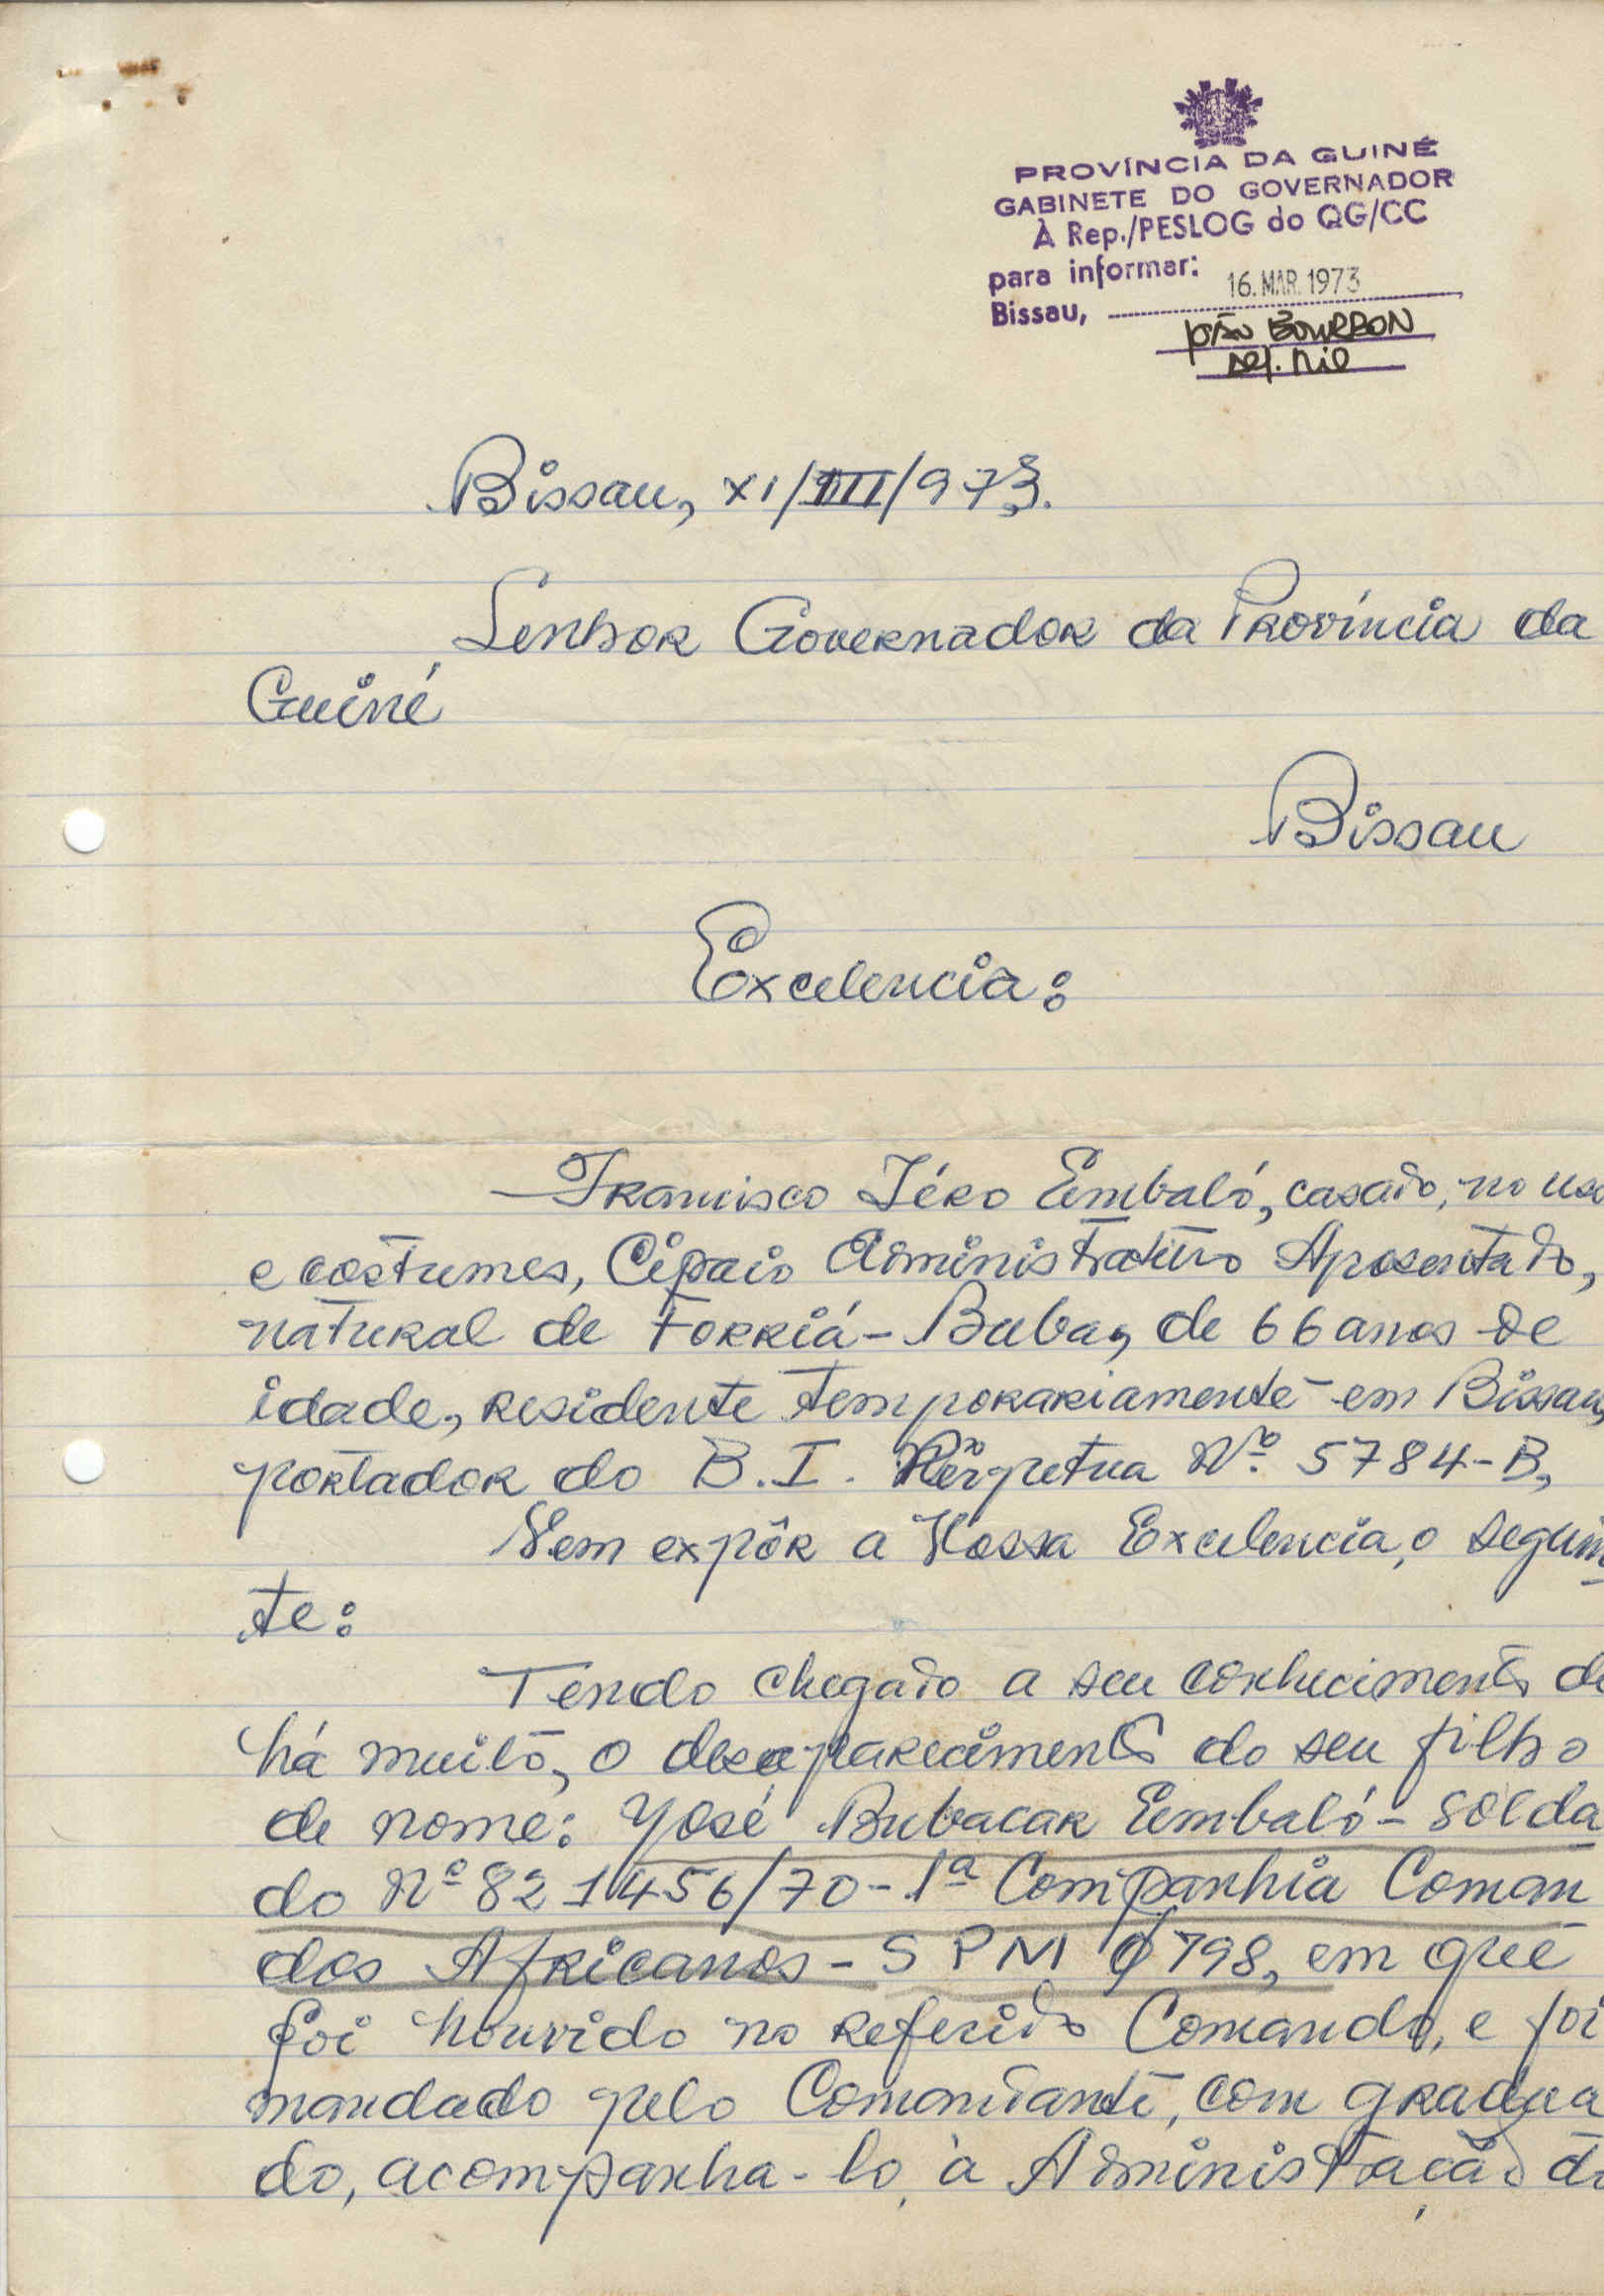 PROVÍNCIA DA GUINÉ
GABINETE DO GOVERNADOR
À Rep./PESLOG do QG/CC
para informar:
Bissau, 16. MAR. 1973
JOÃO BOURBON
Bissau, XI/III/973.
Senhor Governador da Província da
Guiné
Bissau
Excelencia:
Francisco Téro Embaló, casado, no uso
e costumes, Cipaio Administrativo Aposentado,
natural de Forriá-Buba, de 66 anos de
idade, residente temporariamente em Bissau,
portador do B.I. Pérpetua Nº 5784-B,
Vem expôr a Vossa Excelencia, o seguin
te:
Tendo chegado a seu conhecimento de
há muito, o desaparecimento do seu filho
de nome: José Bubacar Embaló - solda
do Nº 821456/70 - 1ª Companhia Coman
dos Africanos - S P M 0798, em que
foi houvido no referido Comando, e foi
mandado pelo Comandante, com gradua
do, acompanha-lo, à Administração do